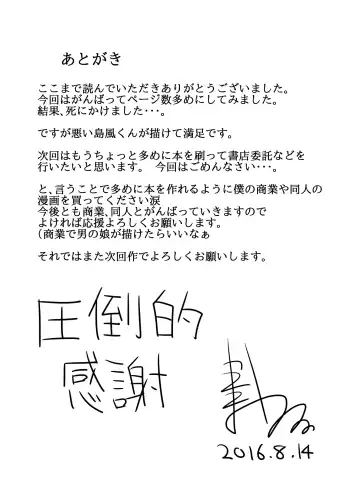 あとがき
ここまで読んでいただきありがとうございました。
今回はがんばってページ数多めにしてみました。
結果、死にかけました・・・。
ですが悪い島風くんが描けて満足です。
次回はもうちょっと多めに本を刷って書店委託などを
行いたいと思います。 今回はごめんなさい・・・。
と、言うことで多めに本を作れるように僕の商業や同人の
漫画を買ってください涙
今後とも商業、同人とがんばっていきますので
よければ応援よろしくお願いします。
（商業で男の娘が描けたらいいなぁ
それではまた次回作でよろしくお願いします。
圧倒的
感謝
2016.8.14